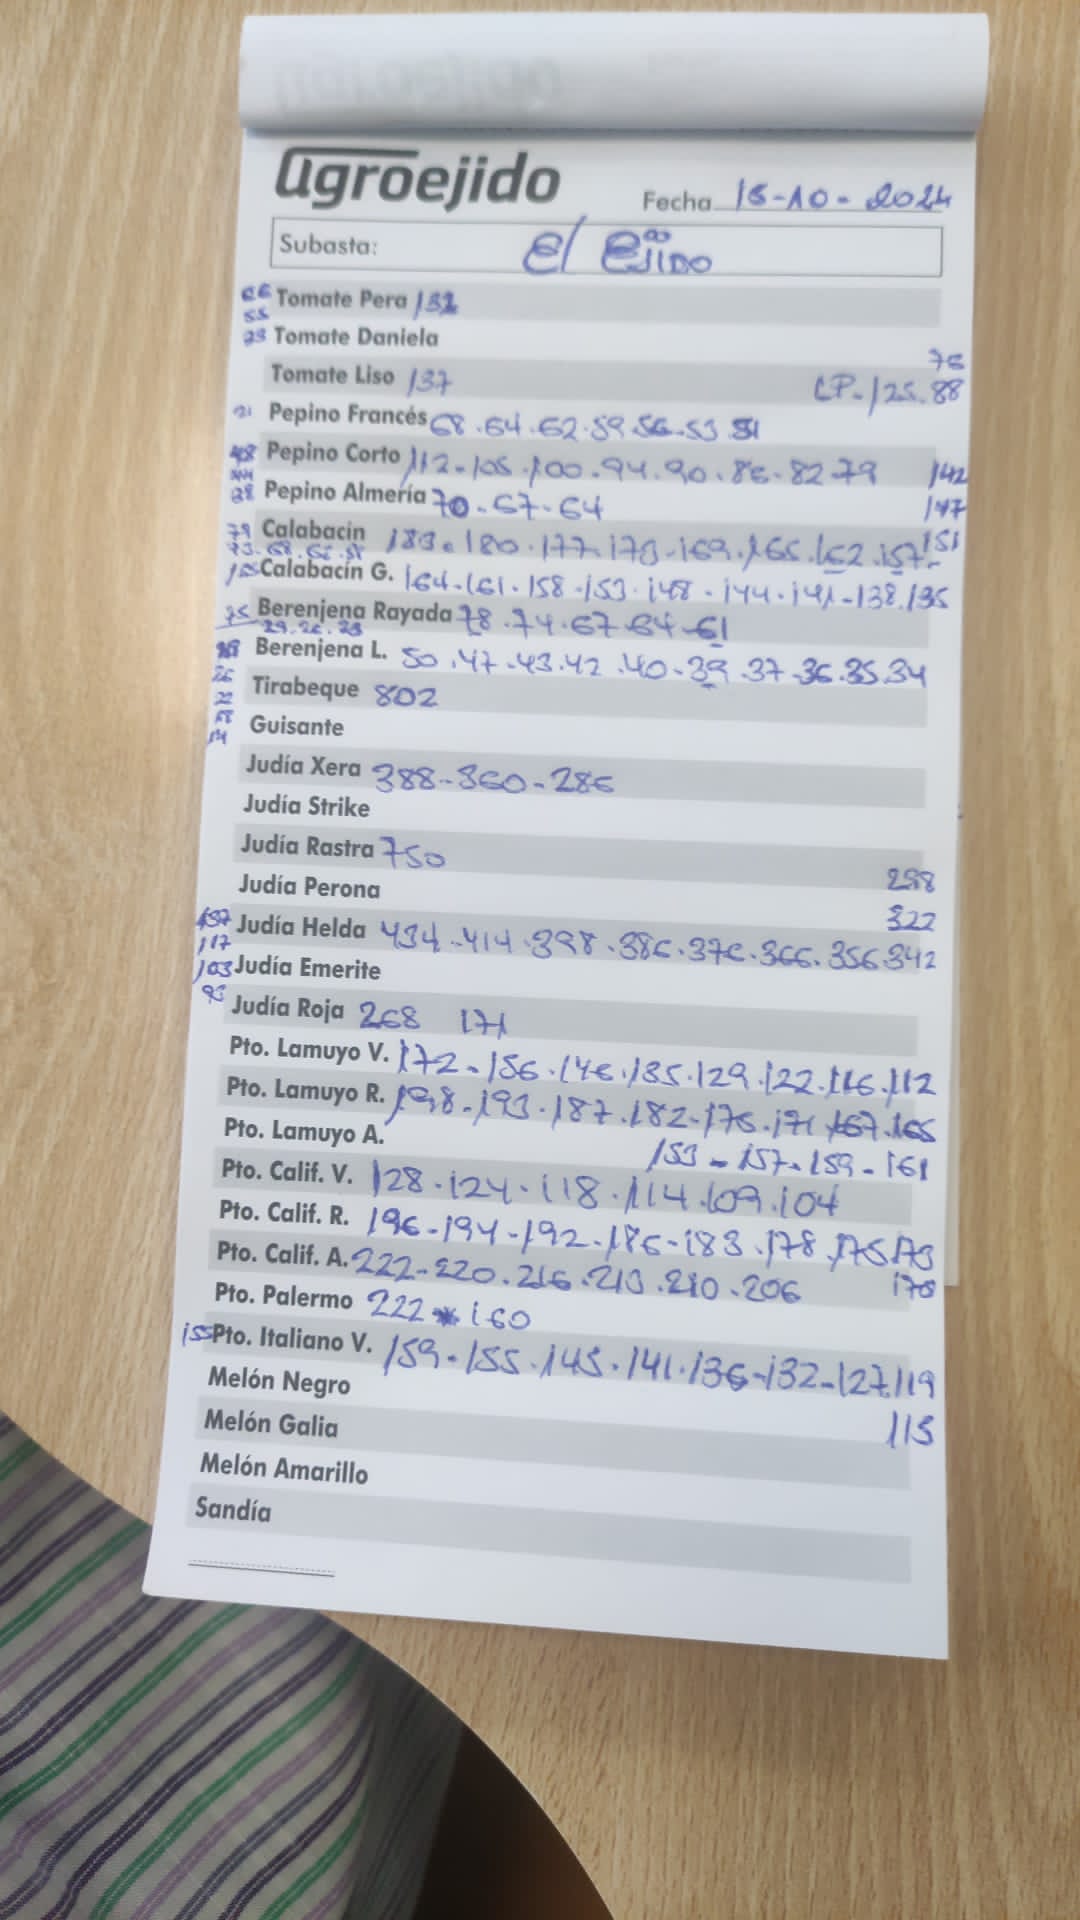 agroejido
Fecha 16-10-2024
Subasta: El Ejido
Tomate Pera 132
Tomate Daniela
76
Tomate Liso 137 LP-125.88
Pepino Francés 68.64.62.59.56-53 51
Pepino Corto 112-105.100.94.90.86-82-79 142
Pepino Almería 70-67-64 147
Calabacín 183.180.177.173-169.165.162.157- 151
79
73.68.62.58
Calabacín G. 164-161.158.153.148.144.141-138.135
Berenjena Rayada 78.74.67-64-61
29.26.23
Berenjena L. 50.47.43.42.40-39.37-36.35.34
Tirabeque 802
Guisante
Judía Xera 388-360-286
Judía Strike
Judía Rastra 750
298
Judía Perona
322
Judía Helda 434-414.398.386.376.366.356.342
117
103 Judía Emerite
Judía Roja 268 171
Pto. Lamuyo V. 172-156.146.135.129.122.116.112
Pto. Lamuyo R. 198-193.187.182-176.171.167.165
Pto. Lamuyo A. 153-157.159-161
Pto. Calif. V. 128.124.118.114.109.104
Pto. Calif. R. 196-194-192.186-183.178.175.173
Pto. Calif. A. 222-220.216.213.210.206 170
Pto. Palermo 222 160
155 Pto. Italiano V. 159.155.145.141.136-132-127.119
Melón Negro
113
Melón Galia
Melón Amarillo
Sandía